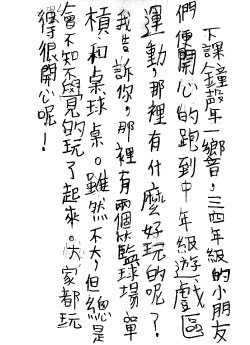 下課鐘聲一響,三四年級的小朋友
們便開心的跑到中年級遊戲區
運動,那裡有什麼好玩的呢?
我告訴你,那裡有兩個籃球場、單
槓和桌球桌。雖然不大,但總是
會不知不覺的玩了起來。大家都玩
得很開心呢!